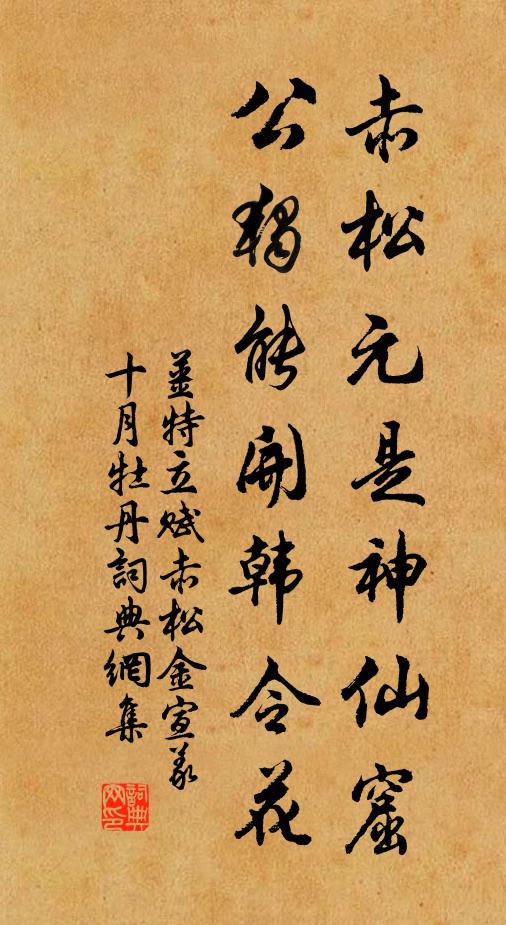 赤松元是神仙窟
公独能開韩令花
姜特立赋赤松金宣義
十月牡丹詞典網集
詞典
网印